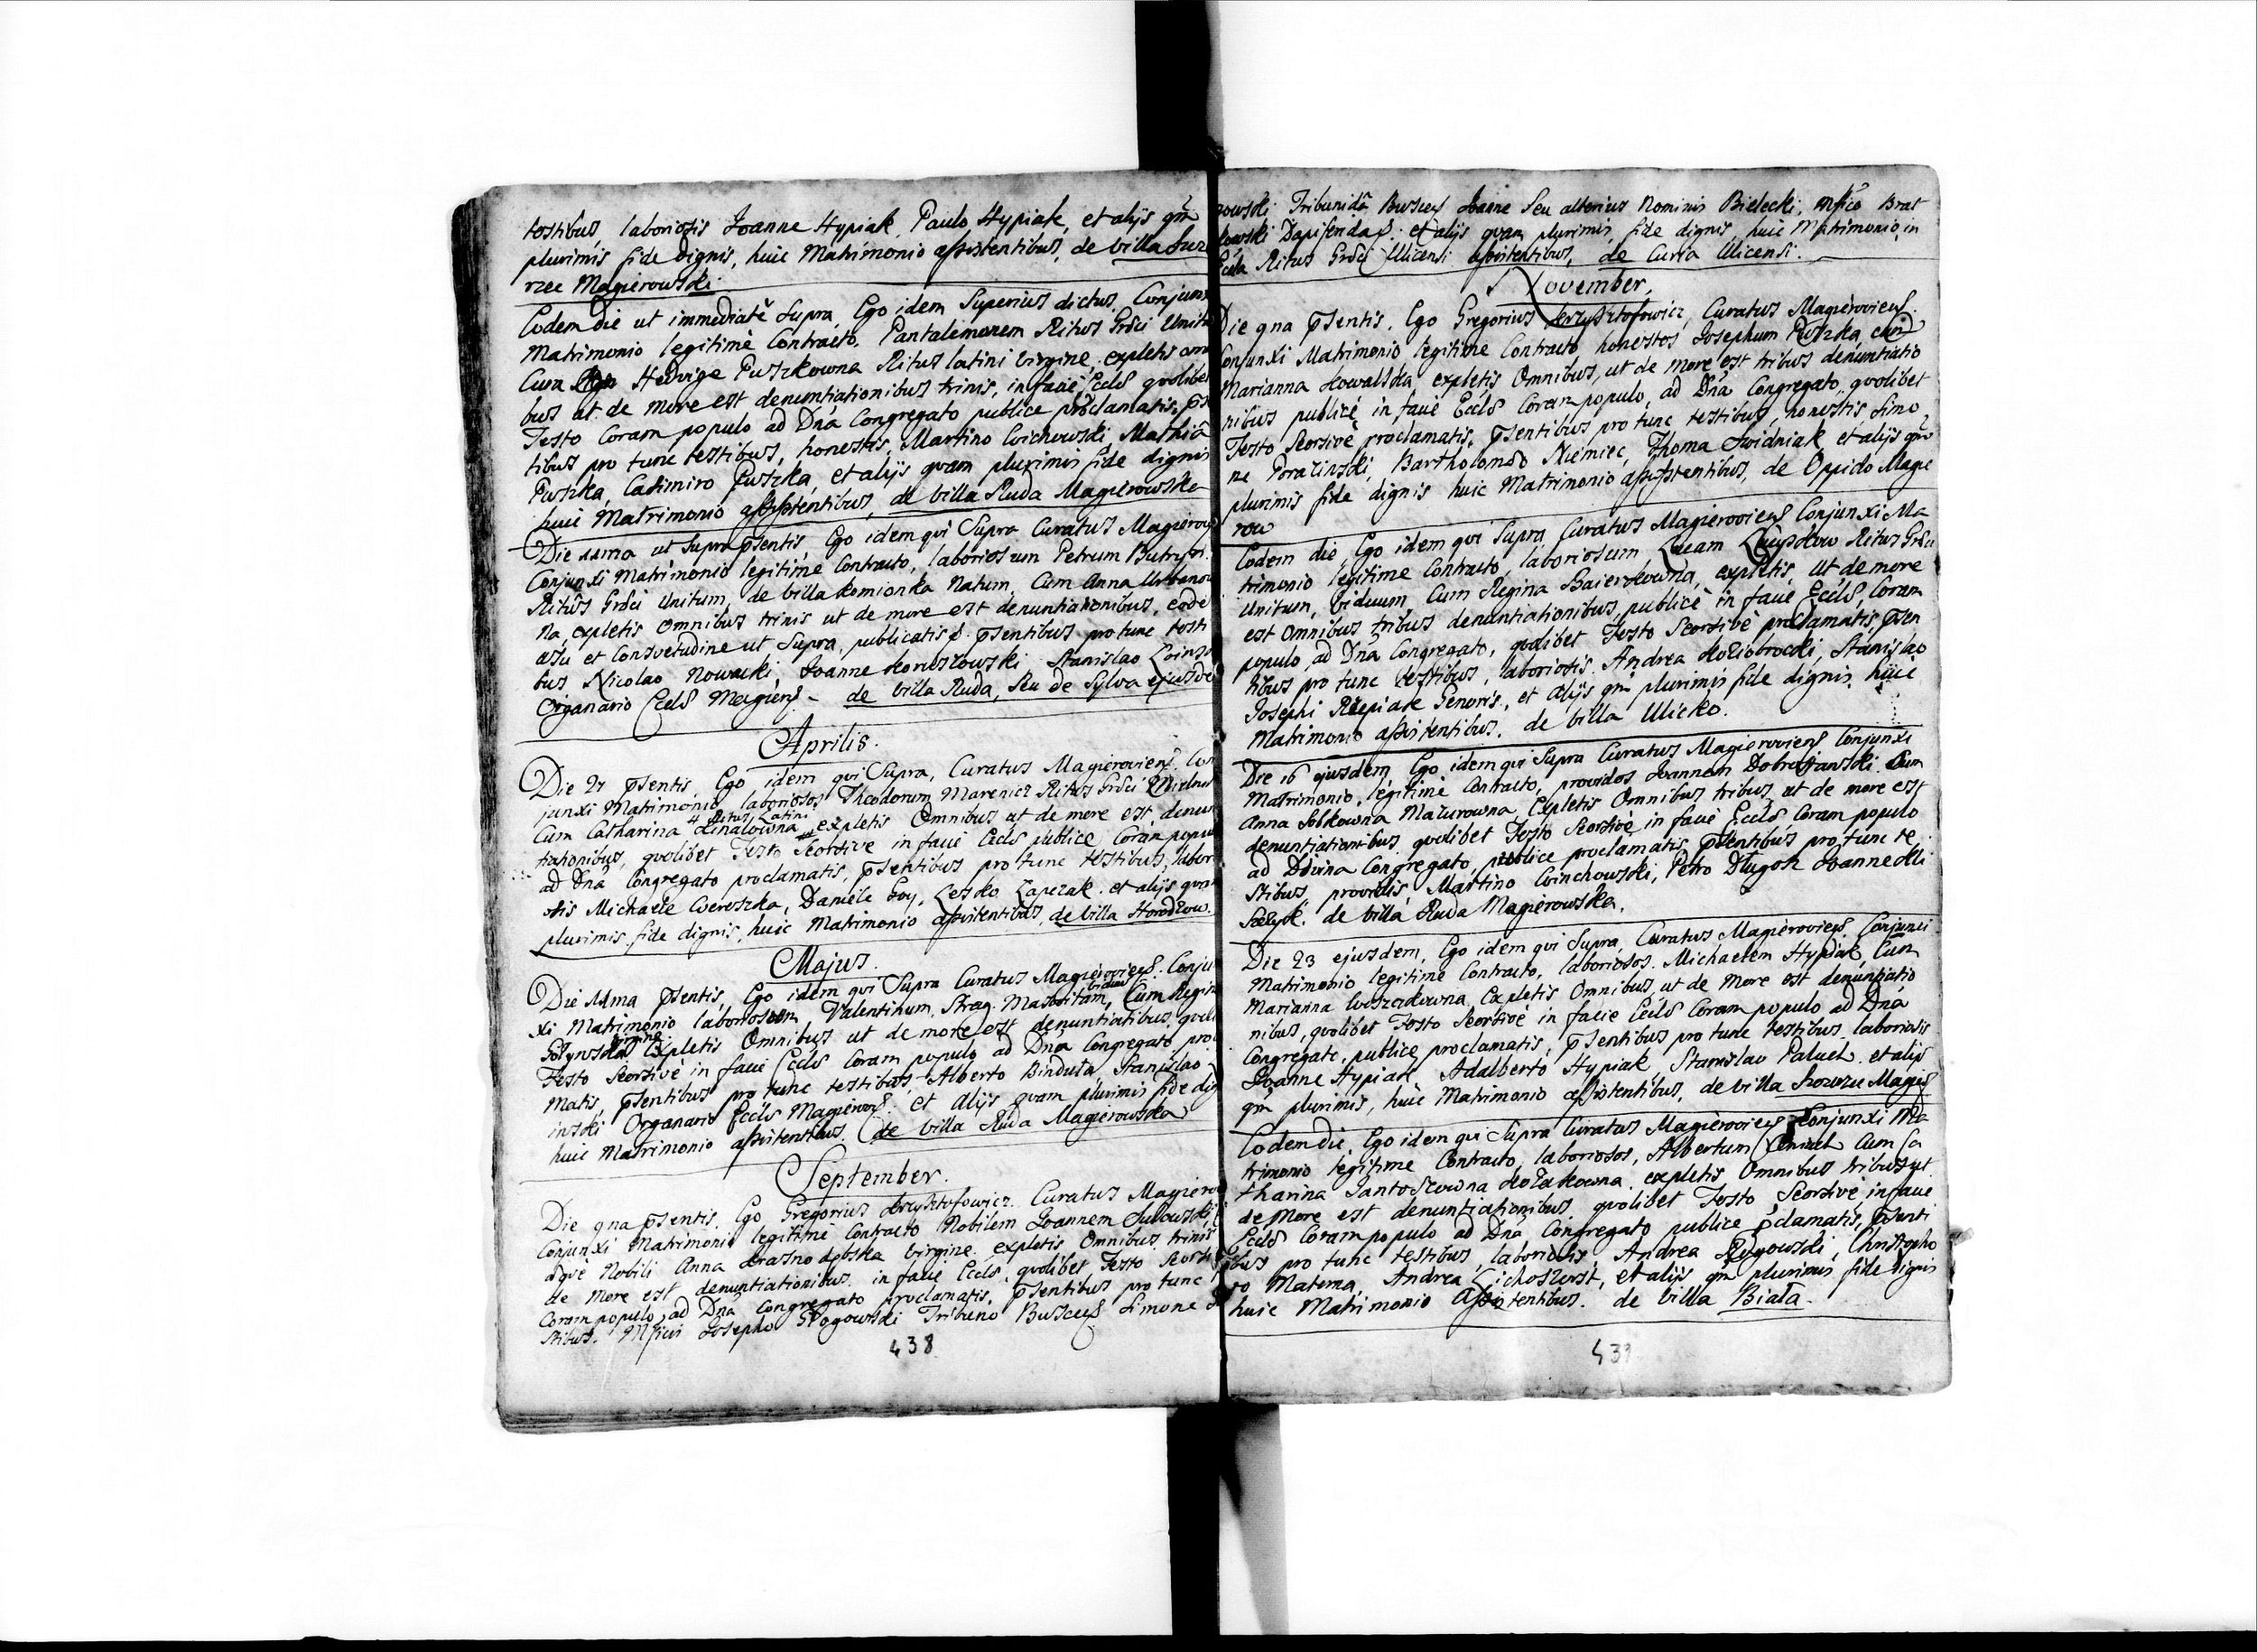 testibus, laboriosis Joanne Hypiak, Paulo Hypiak, et alijs qm̃
plurimis fide dignis, huic Matrimonio assistentibus, de villa
rzec Magierowski
Eodem die ut immediatè Supra, Ego idem Superius dictus, Conjun
Matrimonio legitimè Contracto, Pantalemonem Ritus Grǣci Unit
Cum Hedvige Puszkowna Ritus latini virgine, expletis om
bus ut de more est denuntiationibus trinis, in facie Eccls quolibet
Festo Coram populo ad Dna Congregato publice proclamatis, ps
tibus pro tunc testibus, honestis, Martino Coichowski, Mathia
Puszka, Casimiro Puszka, et alijs quam plurimis fide dignis
huic Matrimonio assistentibus, de villa Ruda Magierowska
Die 11ma ut Supra psentis, Ego idem qui Supra Curatus Magierov
Conjunxi Matrimonio legitimè Contracto, laboriosum Petrum
Ritus Grǣci Unitum, de villa Komionka Natum, Cum Anna Urbanow
na, expletis Omnibus trinis ut de more est denuntiationibus, eode
usu et Consvetudine ut Supra, publicatis psentibus pro tunc testi
bus Nicolao Nowacki, Joanne Koruszowski, Stanislao
Organario Eccls Magiers - de villa Ruda, Seu de Sylva ejusde
Aprilis.
Die 27 psentis, Ego idem qui Supra, Curatus Magieroviens. Con
junxi Matrimonio, laboriosos Theodorum Marenicz Ritus Grǣci
Ritus Latini
Cum Catharina Linalowna expletis Omnibus ut de more est, denun
tiationibus, quolibet Festo Seorsivè in facie Eccls publice Coram popu
ad Dna Congregato proclamatis, psentibus pro tunc testibus, labor
osis Michaele Wereszka, Daniele Goy, Lesko Lapczak. et alijs qua
plurimis fide dignis, huic Matrimonio assistentibus, de villa Horodzow.
Majus.
Die 11ma psentis, Ego idem qui Supra Curatus Magieroviens. Conju
viduum
xi Matrimonio laboriosum Valentinum Strag. Masovitam, Cum Regin
virgine
Expletis Omnibus ut de more est denuntiatibus, quoli
Festo Seorsivè in facie Eccls Coram populo ad Dna Congregato pro
matis, psentibus pro tunc testibus, Alberto Binduła Stanislao
inski Organario Eccls Magierovs. et alijs quam plurimis fide dig
huic Matrimonio assistentibus. de villa Ruda Magierowska
September.
Die 9na psentis. Ego Gregorius Krzysztofowicz. Curatus Magiero
Conjunxi Matrimonio legitimè Contracto Nobilem Joannem Sulowski
dque Nobili Anna Krasnodębska virgine. expletis Omnibus trinis
de more est denuntiationibus. in facie Eccls, quolibet Festo Seorsi
Coram populo, ad Dna Congregato proclamatis, psentibus pro tunc
stibus. Mficis Josepho Głogowski Tribuno Busceṇs Simone
438
Tribunida Busceṇs Joanne Seu alterius Nominis Bielecki, Mfico Brat
kowski Dapiferida. et alijs quam plurimis, fide dignis, huic Matrimonio, in
Eccla Ritus Grǣci Ulicensi assistentibus, de Curia Ulicensi.
November.
Die 9na psentis. Ego Gregorius Krzysztofowicz, Curatus Magieroviens.
Conjunxi Matrimonio legitime Contracto, honestos Josephum Puszka, cum
Marianna Kowalska expletis Omnibus, ut de more est tribus denuntiatio
nibus publicè in facie Eccls Coram populo, ad Dna Congregato, quolibet
Festo Seorsivè proclamatis, psentibus pro tunc testibus, honestis Simo,
ne Porazinski, Bartholomæo Niemiec, Thoma Swidniak et alijs qm̃
plurimis fide dignis huic Matrimonio assistentibus, de Oppido Magie
row
Eodem die, Ego idem qui Supra Curatus Magieroviens Conjunxi Ma
trimonio legitime Contracto, laboriosum Lucam Ritus Grǣci
Unitum, viduum, Cum Regina Baierkowna, expletis, ut de more
est Omnibus tribus denuntiationibus, publicè in facie Eccls, Coram
populo ad Dna Congregato, quolibet Festo Seorsivè proclamatis, psen
tibus pro tunc testibus, laboriosis Andrea Koziobrocki, Stanislao
Josephi Rzepiak Generis, et alijs qm̃ plurimis fide dignis. huic
Matrimonio assistentibus. de villa Ulicko.
Die 16 ejusdem, Ego idem qui Supra Curatus Magieroviens Conjunxi
Matrimonio, legitimè Contracto, providos Joannem Dobrojanski. Cum
Anna Sobkowna Mazurowna, Expletis Omnibus tribus, ut de more est
denuntiationibus quolibet Festo Seorsivè in facie Eccls Coram populo
ad Divina Congregato, publice proclamatis, psentibus pro tunc te
stibus, providis Martino Coinchowski, Petro Długosz Joanne Oli
de villa Ruda Magierowska.
Die 23 ejusdem, Ego idem qui Supra, Curatus Magieroviens, Conjunxi
Matrimonio legitimè Contracto, laboriosos. Michaelem Hypiak, Cum
Marianna Woszczkowna, Expletis Omnibus, ut de More est denuntiatio
nibus, quolibet Festo Seorsivè in facie Eccls Coram populo ad Dna
Congregato, publice proclamatis, psentibus pro tunc testibus, laboriosis
Joanne Hypiak Adalberto Hypiak, Stanislao Paluch, et alijs
qm̃ plurimis, huic Matrimonio assistentibus, de villa Magier
Eodem die, Ego idem qui Supra Curatus Magieroviens, Conjunxi Ma
trimonio legitime Contracto, laboriosos, Albertum Cum Ca
tharina Jantoszowna Kozakowna. expletis Omnibus tribus ut
de More est denuntiationibus, quolibet Festo Seorsivè, in facie
Eccls Coram populo ad Dna Congregato publice pclamatis, psenti
bus pro tunc testibus, laboriosis, Andrea Rogowski, Christopho
ro Materna, Andrea et alijs qm̃ plurimis fide dignis
huic Matrimonio assistentibus. de villa Biała.
439